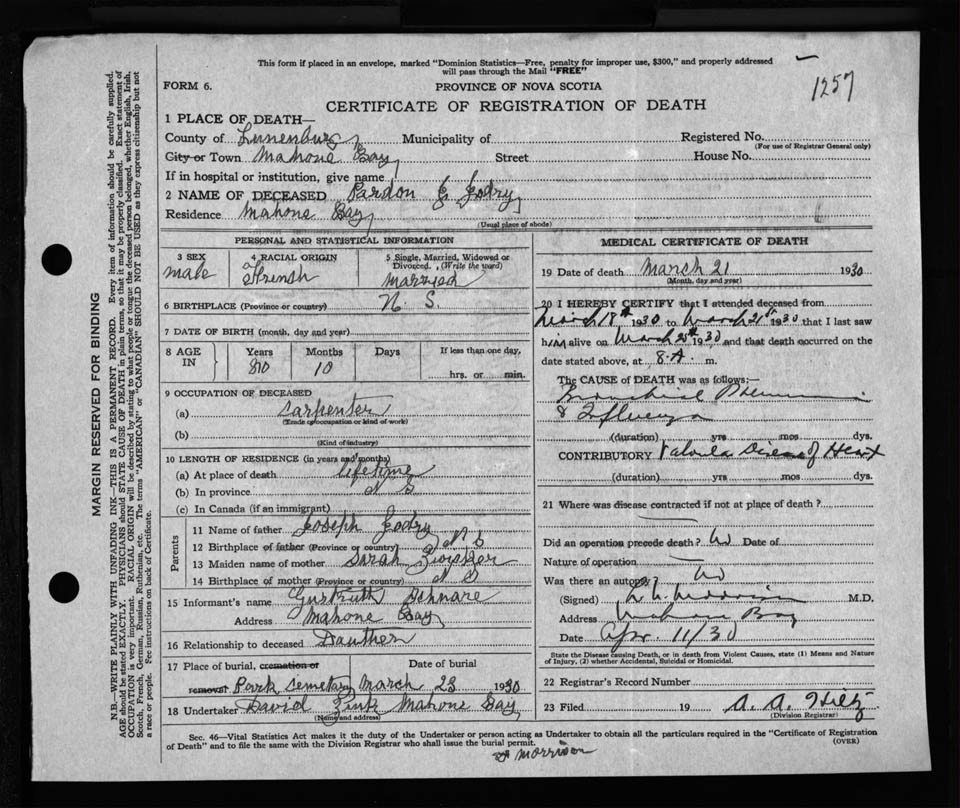 This form if placed in an envelope, marked "Dominion Statistics—Free, penalty for improper use, $300," and properly addressed
will pass through the Mail "FREE"
1257
FORM 6.
PROVINCE OF NOVA SCOTIA
CERTIFICATE OF REGISTRATION OF DEATH
1 PLACE OF DEATH—
County of Lunenburg Municipality of Registered No.
(For use of Registrar General only)
City or Town Mahone Bay Street House No.
If in hospital or institution, give name
2 NAME OF DECEASED Pardon G Godry
Residence Mahone Bay
(Usual place of abode)
PERSONAL AND STATISTICAL INFORMATION
3 SEX 4 RACIAL ORIGIN 5 Single, Married, Widowed or
Divorced. (Write the word)
male French married
6 BIRTHPLACE (Province or country) N. S.
7 DATE OF BIRTH (month, day and year)
8 AGE IN Years Months Days If less than one day,
80 10 hrs. or min.
9 OCCUPATION OF DECEASED
(a) Carpenter
(Trade or occupation or kind of work)
(b)
(Kind of industry)
10 LENGTH OF RESIDENCE (in years and months)
(a) At place of death lifetime
(b) In province N S
(c) In Canada (if an immigrant)
Parents
11 Name of father Joseph Godry
12 Birthplace of father (Province or country) N S
13 Maiden name of mother Sarah Zwicker
14 Birthplace of mother (Province or country) N S
15 Informant's name Gurtruth Schnare
Address Mahone Bay
16 Relationship to deceased Dauther
17 Place of burial, cremation or Date of burial
removal Park Cemetary March 23 1930
18 Undertaker David Zink Mahone Bay
(Name and address)
MEDICAL CERTIFICATE OF DEATH
19 Date of death March 21 1930
(Month, day and year)
20 I HEREBY CERTIFY that I attended deceased from
March 18th 1930 to March 21st 1930 that I last saw
him alive on March 20th 1930 and that death occurred on the
date stated above, at 8.A. m.
The CAUSE of DEATH was as follows:—
Bronchial Pneumonia
& Influenza
(duration) yrs mos dys.
CONTRIBUTORY Valvular Disease of Heart
(duration) yrs mos dys.
21 Where was disease contracted if not at place of death?
Did an operation precede death? No Date of
Nature of operation
Was there an autopsy? No
(Signed) Morrison M.D.
Address Mahone Bay
Date Apr 11/30
State the Disease causing Death, or in death from Violent Causes, state (1) Means and Nature
of Injury, (2) whether Accidental, Suicidal or Homicidal.
22 Registrar's Record Number
23 Filed 19 A. A. Hiltz
(Division Registrar)
Sec. 46—Vital Statistics Act makes it the duty of the Undertaker or person acting as Undertaker to obtain all the particulars required in the "Certificate of Registration
of Death" and to file the same with the Division Registrar who shall issue the burial permit. (OVER)
Morrison
MARGIN RESERVED FOR BINDING
N.B.—WRITE PLAINLY WITH UNFADING INK—THIS IS A PERMANENT RECORD. Every item of information should be carefully supplied.
AGE should be stated EXACTLY. PHYSICIANS should STATE CAUSE OF DEATH in plain terms, so that it may be properly classified. Exact statement of
OCCUPATION is very important. RACIAL ORIGIN will be described by stating to what people or tongue the deceased person belonged, whether English, Irish,
Scotch, French, German, Russian, Ruthenian, etc. The terms "AMERICAN" or "CANADIAN" SHOULD NOT BE USED as they express citizenship but not
a race or people. Fee instructions on back of Certificate.